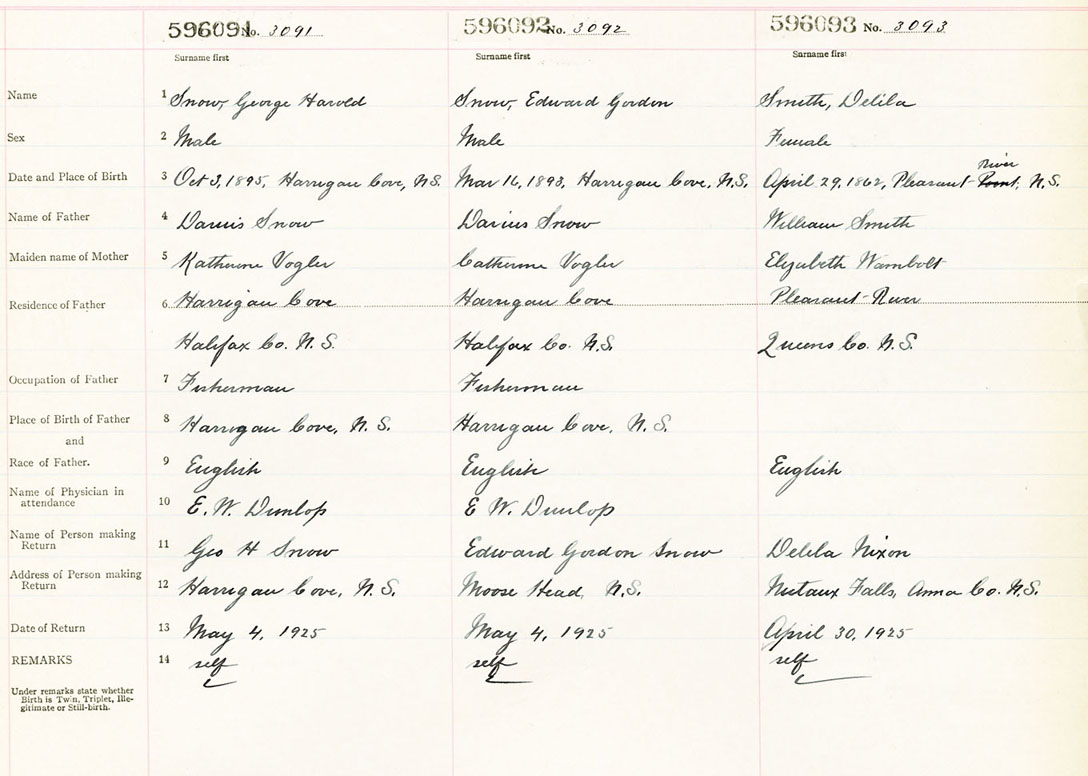 596091 No. 3091 596092 No. 3092 596093 No. 3093
Surname first Surname first Surname first
Name 1 Snow, George Harold Snow, Edward Gordon Smith, Delila
Sex 2 Male Male Female
River
Date and Place of Birth 3 Oct 3, 1895, Harrigan Cove, N.S. Mar 16, 1893, Harrigan Cove, N.S. April 29, 1862, Pleasant Point, N.S.
Name of Father 4 Darius Snow Darius Snow William Smith
Maiden name of Mother 5 Katherine Vogler Catherine Vogler Elizabeth Wambolt
Residence of Father 6 Harrigan Cove Harrigan Cove Pleasant River
Halifax Co. N.S. Halifax Co. N.S. Queens Co. N.S.
Occupation of Father 7 Fisherman Fisherman
Place of Birth of Father 8 Harrigan Cove, N.S. Harrigan Cove, N.S.
and
Race of Father. 9 English English English
Name of Physician in
attendance 10 E. W. Dunlop E W. Dunlop
Name of Person making
Return 11 Geo H Snow Edward Gordon Snow Delila Nixon
Address of Person making
Return 12 Harrigan Cove, N.S. Moose Head, N.S. Nictaux Falls, Anna Co. N.S.
Date of Return 13 May 4, 1925 May 4, 1925 April 30, 1925
REMARKS 14 self self self
Under remarks state whether
Birth is Twin, Triplet, Ille-
gitimate or Still-birth.